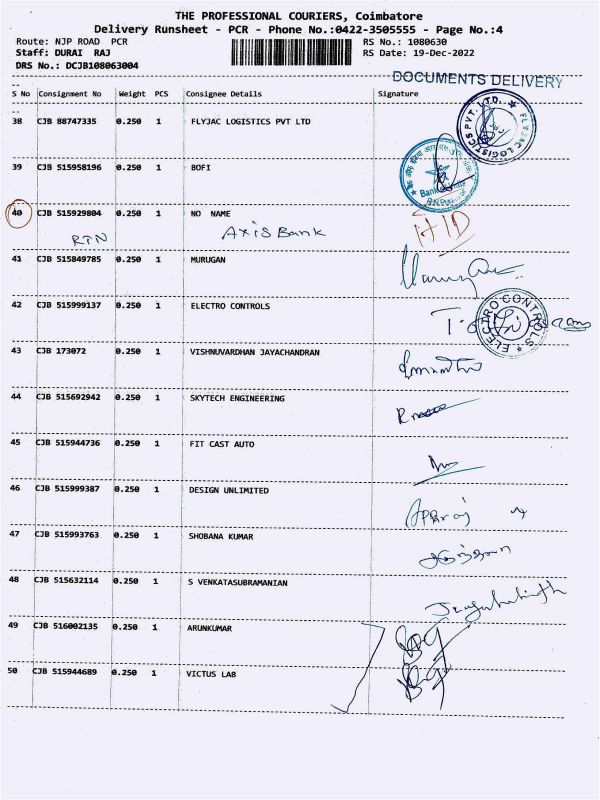 THE PROFESSIONAL COURIERS, Coimbatore
Delivery Runsheet - PCR - Phone No.:0422-3505555 - Page No.:4
Route: NJP ROAD PCR RS No.: 1080630
Staff: DURAI RAJ RS Date: 19-Dec-2022
DRS No.: DCJB108063004
DOCUMENTS DELIVERY
S No Consignment No Weight PCS Consignee Details Signature
38 CJB 88747335 0.250 1 FLYJAC LOGISTICS PVT LTD
FLYJAC LOGISTICS PVT. LTD.
39 CJB 515958196 0.250 1 BOFI
40 CJB 515929804 0.250 1 NO NAME
RTN Axis Bank H/D
41 CJB 515849785 0.250 1 MURUGAN
42 CJB 515999137 0.250 1 ELECTRO CONTROLS
ELECTRO CONTROLS
43 CJB 173072 0.250 1 VISHNUVARDHAN JAYACHANDRAN
44 CJB 515692942 0.250 1 SKYTECH ENGINEERING
45 CJB 515944736 0.250 1 FIT CAST AUTO
46 CJB 515999387 0.250 1 DESIGN UNLIMITED
47 CJB 515993763 0.250 1 SHOBANA KUMAR
48 CJB 515632114 0.250 1 S VENKATASUBRAMANIAN
49 CJB 516002135 0.250 1 ARUNKUMAR
50 CJB 515944689 0.250 1 VICTUS LAB